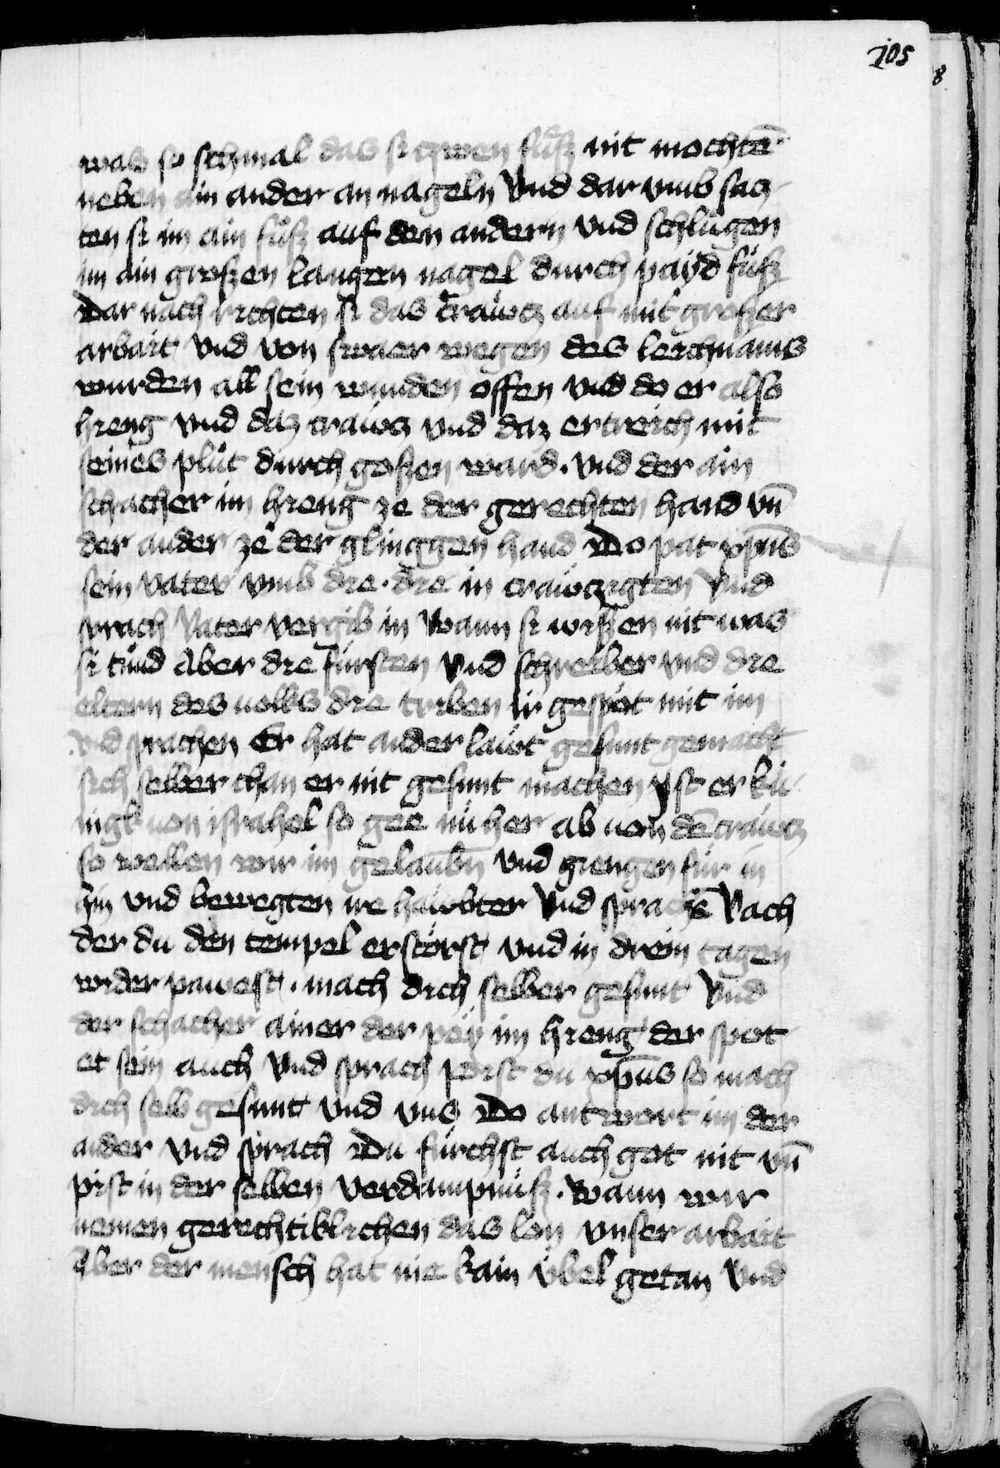 105
8
was so schmal das si zwen füsz nit mochtē
neben ain ander an nageln Vnd dar vmb sacz
ten si im ain fůsz auf den andern vnd schlůgen
im ain groszen langen nagel durch payd füsz
Dar nach richten si das cräwcz auf mit groszer
arbait vnd von swaer wegen des leichnams
wurden all sein wunden offen vnd do er also
hieng vnd daz cräwcz vnd daz ertreich mit
seines plůt durch goszen ward . vnd der ain
schacher im hieng ze der gerechten hand vn̄
der ander ze der glinggen hand Do pat xp̄us
sein vater vmb die . die in cräwczigten Vnd
sprach Vater vergib in Wann si wiszen nit was
si tůnd Aber die fürsten Vnd schreiber vnd die
eltern des volks die triben ir gespöt mit im
vnd sprachen Er hat ander läwt gesunt gemacht
sich selber chan er nit gesunt machen yst er kü
nigk von israhel so gee nu her ab von dē cräwcz
so wellen wir im gelaubn̄ vnd giengen für in
hin vnd bewegten ire häwbter Vnd sprachē Vach
der du den tempel erstörst vnd in drein tagen
wider pawest . mach dich selber gesunt Vnd
der schacher ainer der pey im hieng der spot
et sein auch Vnd sprach pist du xp̄us so mach
dich selb gesunt vnd vns Do antwort im der
ander vnd sprach Du fürchst auch got nit vn̄
pist in der selben verdampnüsz . Wann wir
nemen gerechtiklichen das lon vnser arbait
Aber der mensch hat nie kain übel getan Vnd